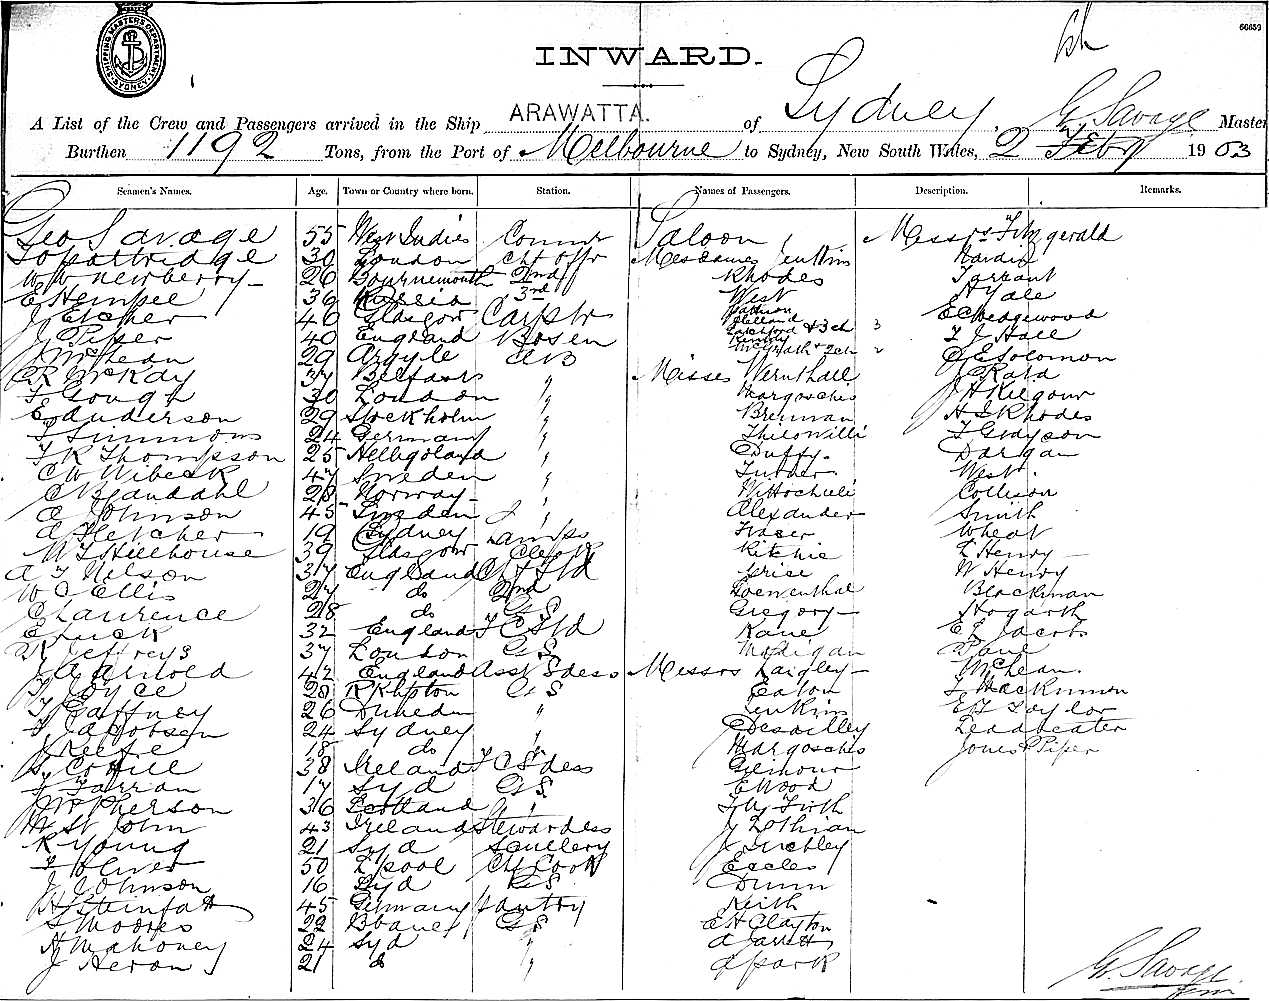 66650
SHIPPING MASTERS DEPARTMENT SYDNEY
INWARD.
A List of the Crew and Passengers arrived in the Ship ARAWATTA. of Sydney, G. Savage Master
Burthen 1192 Tons, from the Port of Melbourne to Sydney, New South Wales, 2 Feby 1903
Seamen's Names. Age. Town or Country where born. Station. Names of Passengers. Description. Remarks.
Geo Savage 55 West Indies Saloon Messrs Fitzgerald
Partridge 30 London Ch Offr Mesdames Jenkins
W W Newberry 26 Bournemouth 2nd Rhodes Tarrant
E Hempel 36 Russia 3rd West Hyde
J Etcher 46 Glasgow Carptr E C Wedgewood
J Piper 40 England Bosen Latchford & 3 ch 3 F J Hall
J McLean 29 Argyle AB McGrath & 2 ch 2 E Solomon
R McKay 37 Belfast " Misses Wernthall
F Gough 30 London " Margosches J H Kilgour
E Anderson 29 Stockholm " Brennan H S Rhodes
F Simmons 24 Germany " F Grayson
F R Thompson 25 Heligoland " Duffy Dargan
C W Wibeck 47 Sweden " Turner West
28 Norway " Collison
A Johnson 45 Sweden " Alexander Smith
A Fletcher 19 Sydney Lamps Fraser Wheat
W J Hillhouse 39 Glasgow Clerk Ritchie L Henry
A J Nelson 37 England Ch Std Grice W Henry
W C Ellis 27 do 2nd Loewenthal Blackman
C Laurence 28 do GS Gregory Hogarth
E Luck 32 England F C Std Kane E L Jacobs
R Jeffreys 37 London GS Madigan
J A Arnold 42 England Asst Sdess Messrs Langley McLean
J Joyce 28 GS Eaton L Mackinnon
J Gaffney 26 Dunedin " Jenkins E J Taylor
J Jacobsen 24 Sydney " Desailley Leadbeater
J Keefe 18 do " Margosches Jones & Piper
38 Ireland F C Sdess Gilmour
J Farran 17 Syd GS E Wood
J McPherson 36 Scotland " Firth
M St John 43 Ireland Stewardess J Lothian
R Young 21 Syd Scullery
Oliver 50 L'pool Ch Cook Eccles
J Johnson 16 Syd GS Dunn
H Steinfatt 45 Germany Pantry Keith
S Moores 22 Bbane GS E H Clayton
H Mahoney 24 Syd " A Jarrett
J Heron 21 do " A Park
G. Savage